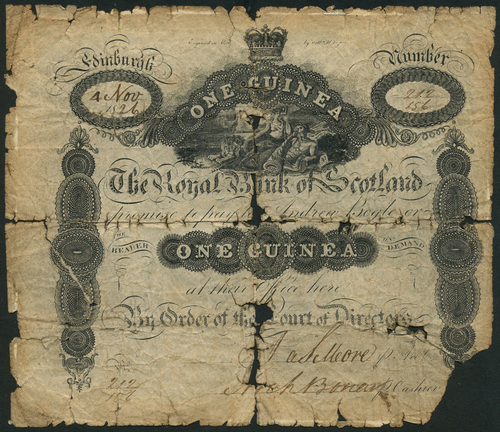 Edinburgh Number
4 Nov 1826
212/156
ONE GUINEA
The Royal Bank of Scotland
promise to pay to Andrew Bogle or
THE BEARER ONE GUINEA ON DEMAND
at their Office here
By Order of the Court of Directors
212/156
Cashier